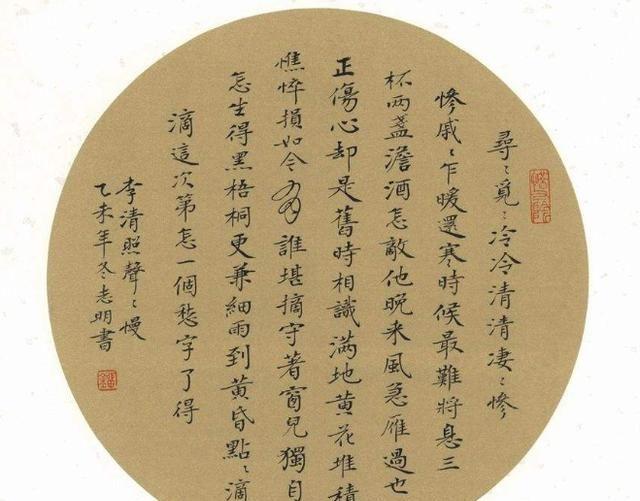 尋〻覓〻冷冷清清凄〻慘
慘戚〻乍暖還寒時候最難將息三
杯兩盞澹酒怎敵他晚来風急雁過也
正傷心却是舊時相識满地黄花堆積
憔悴損如今有誰堪摘守著窗兒獨自
怎生得黑梧桐更兼細雨到黄昏點〻滴
滴這次第怎一個愁字了得
李清照聲〻慢
乙未年冬志明書